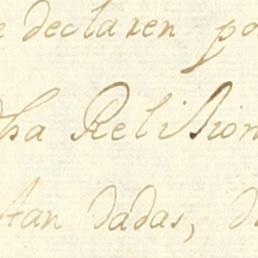 e declaren po
dha Religion
stan dadas, d